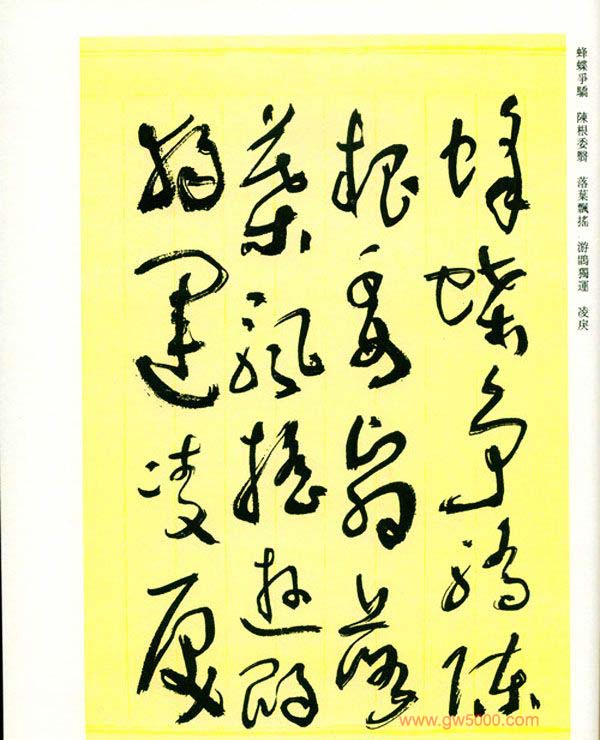 蜂蝶爭驕　陳根委翳　落葉飄搖　游鵾獨運　凌戾
蜂蝶爭驕陳
根委翳落
葉飄搖遊鵾
獨運凌戾
www.gw5000.com